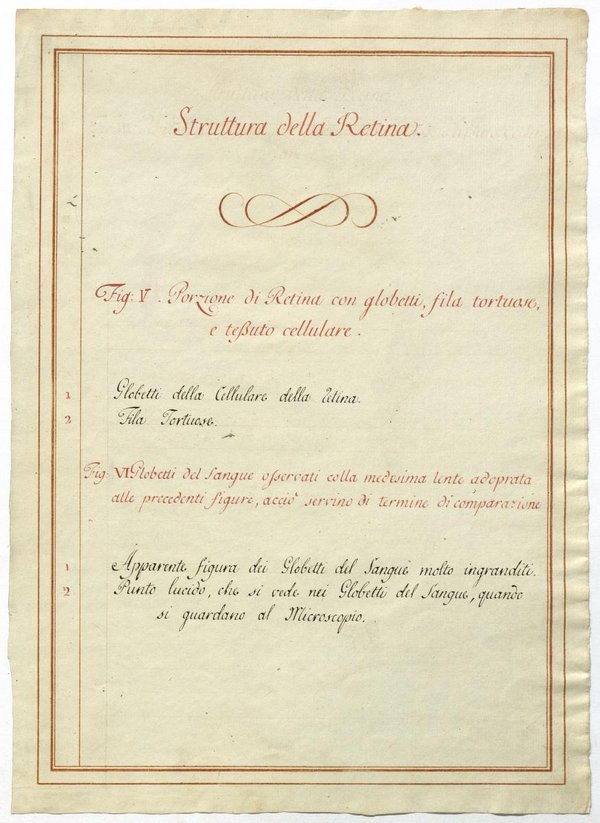 Struttura della Retina.
Fig: V. Porzione di Retina con globetti, fila tortuose,
e teßuto cellulare.
1 Globetti della Cellulare della retina.
2 Fila Tortuose.
Fig: VI Globetti del Sangue osservati colla medesima lente adoprata
alle precedenti figure, acciò servino di termine di comparazione
1 Apparente figura dei Globetti del Sangue molto ingranditi.
2 Punto lucido, che si vede nei Globetti del Sangue, quando
si guardano al Microscopio.